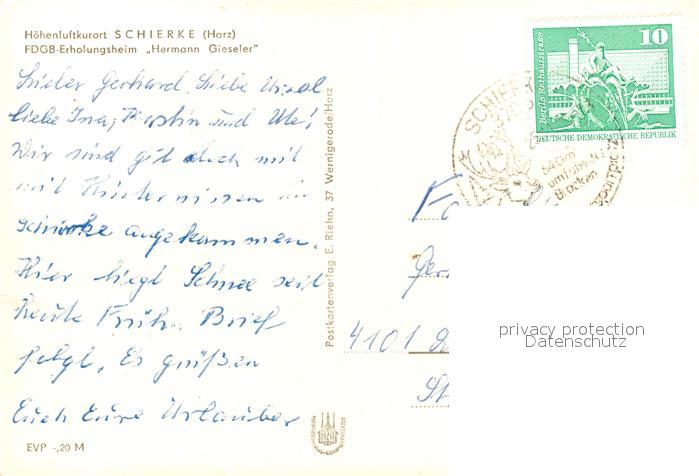 Höhenluftkurort SCHIERKE (Harz)
FDGB-Erholungsheim „Hermann Gieseler"
Lieber Gerhard, liebe Ursel
liebe Ina, Kerstin und Ute!
Wir sind gut doch mit
mit Hindernissen in
Schierke angekommen.
Hier liegt Schnee seit
heute Früh. Brief
folgt, Es grüßen
Euch Eure Urlauber
EVP -,20 M
Postkartenverlag E. Riehn, 37 Wernigerode/Harz
SCHIERKE
640 m
am Fuße des
Brocken
Berlin Rathausstraße
10
DEUTSCHE DEMOKRATISCHE REPUBLIK
Fa
Ger
4101
St
privacy protection
Datenschutz